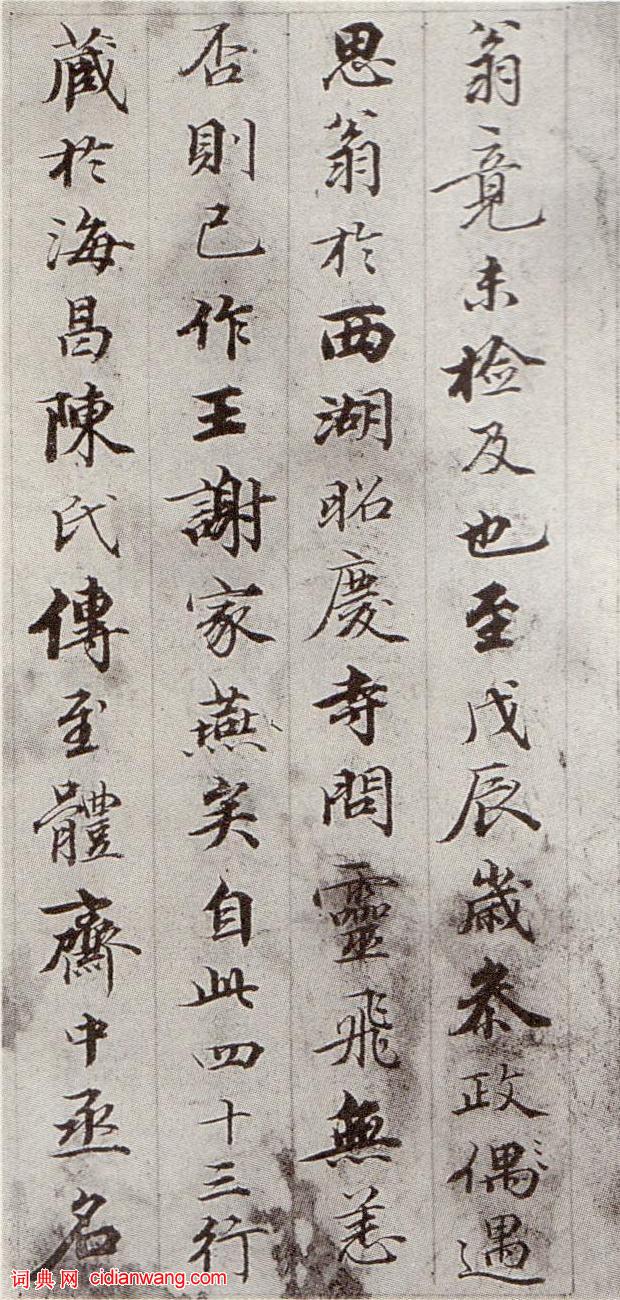 翁竟未检及也至戊辰歲叅政偶遇
思翁於西湖昭慶寺問靈飛無恙
否則已作王謝家燕矣自此四十三行
蔵於海昌陳氏傳至體齋中丞名
词典网 cidianwang.com